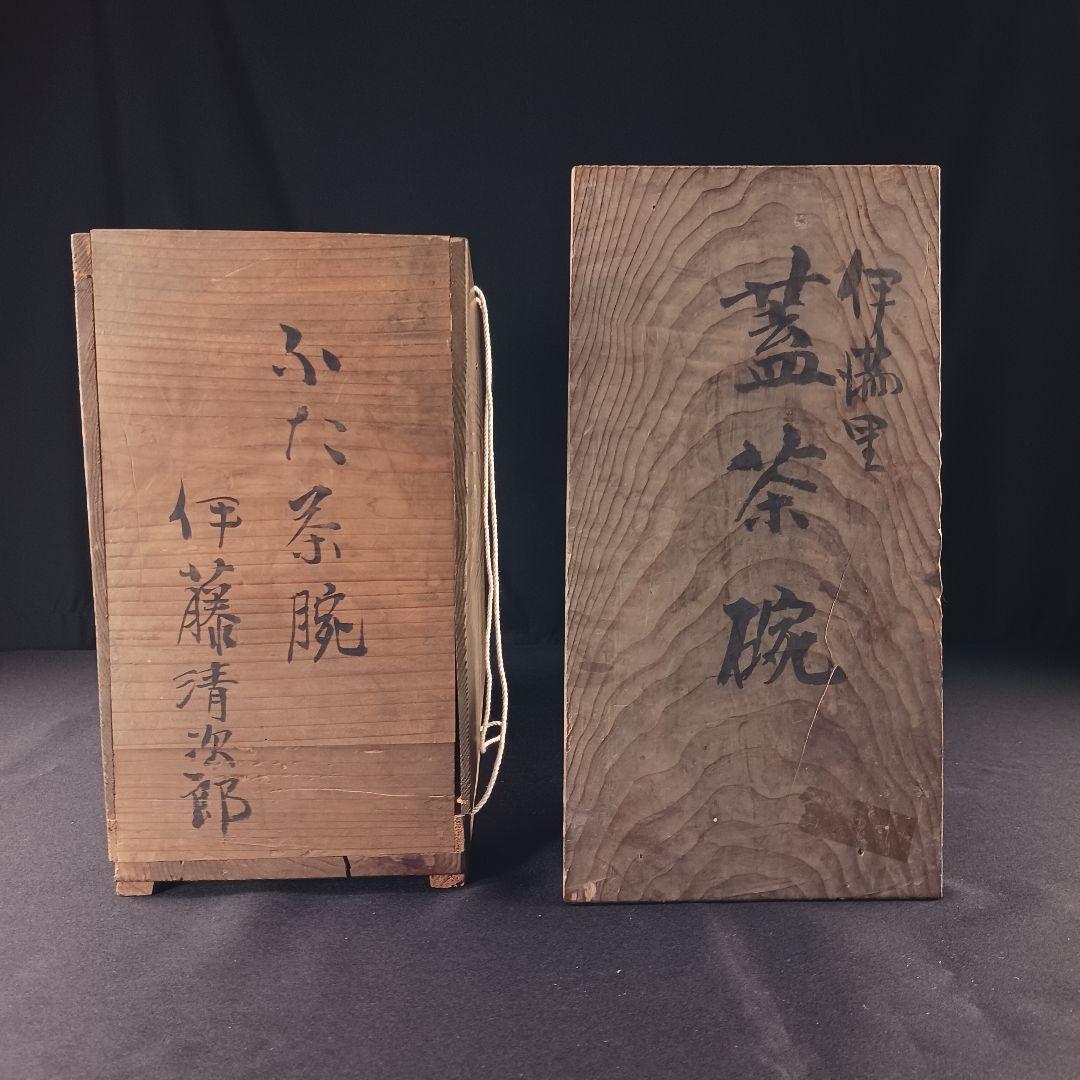 ふた茶腕
伊藤清次郎
伊満里
蓋茶碗